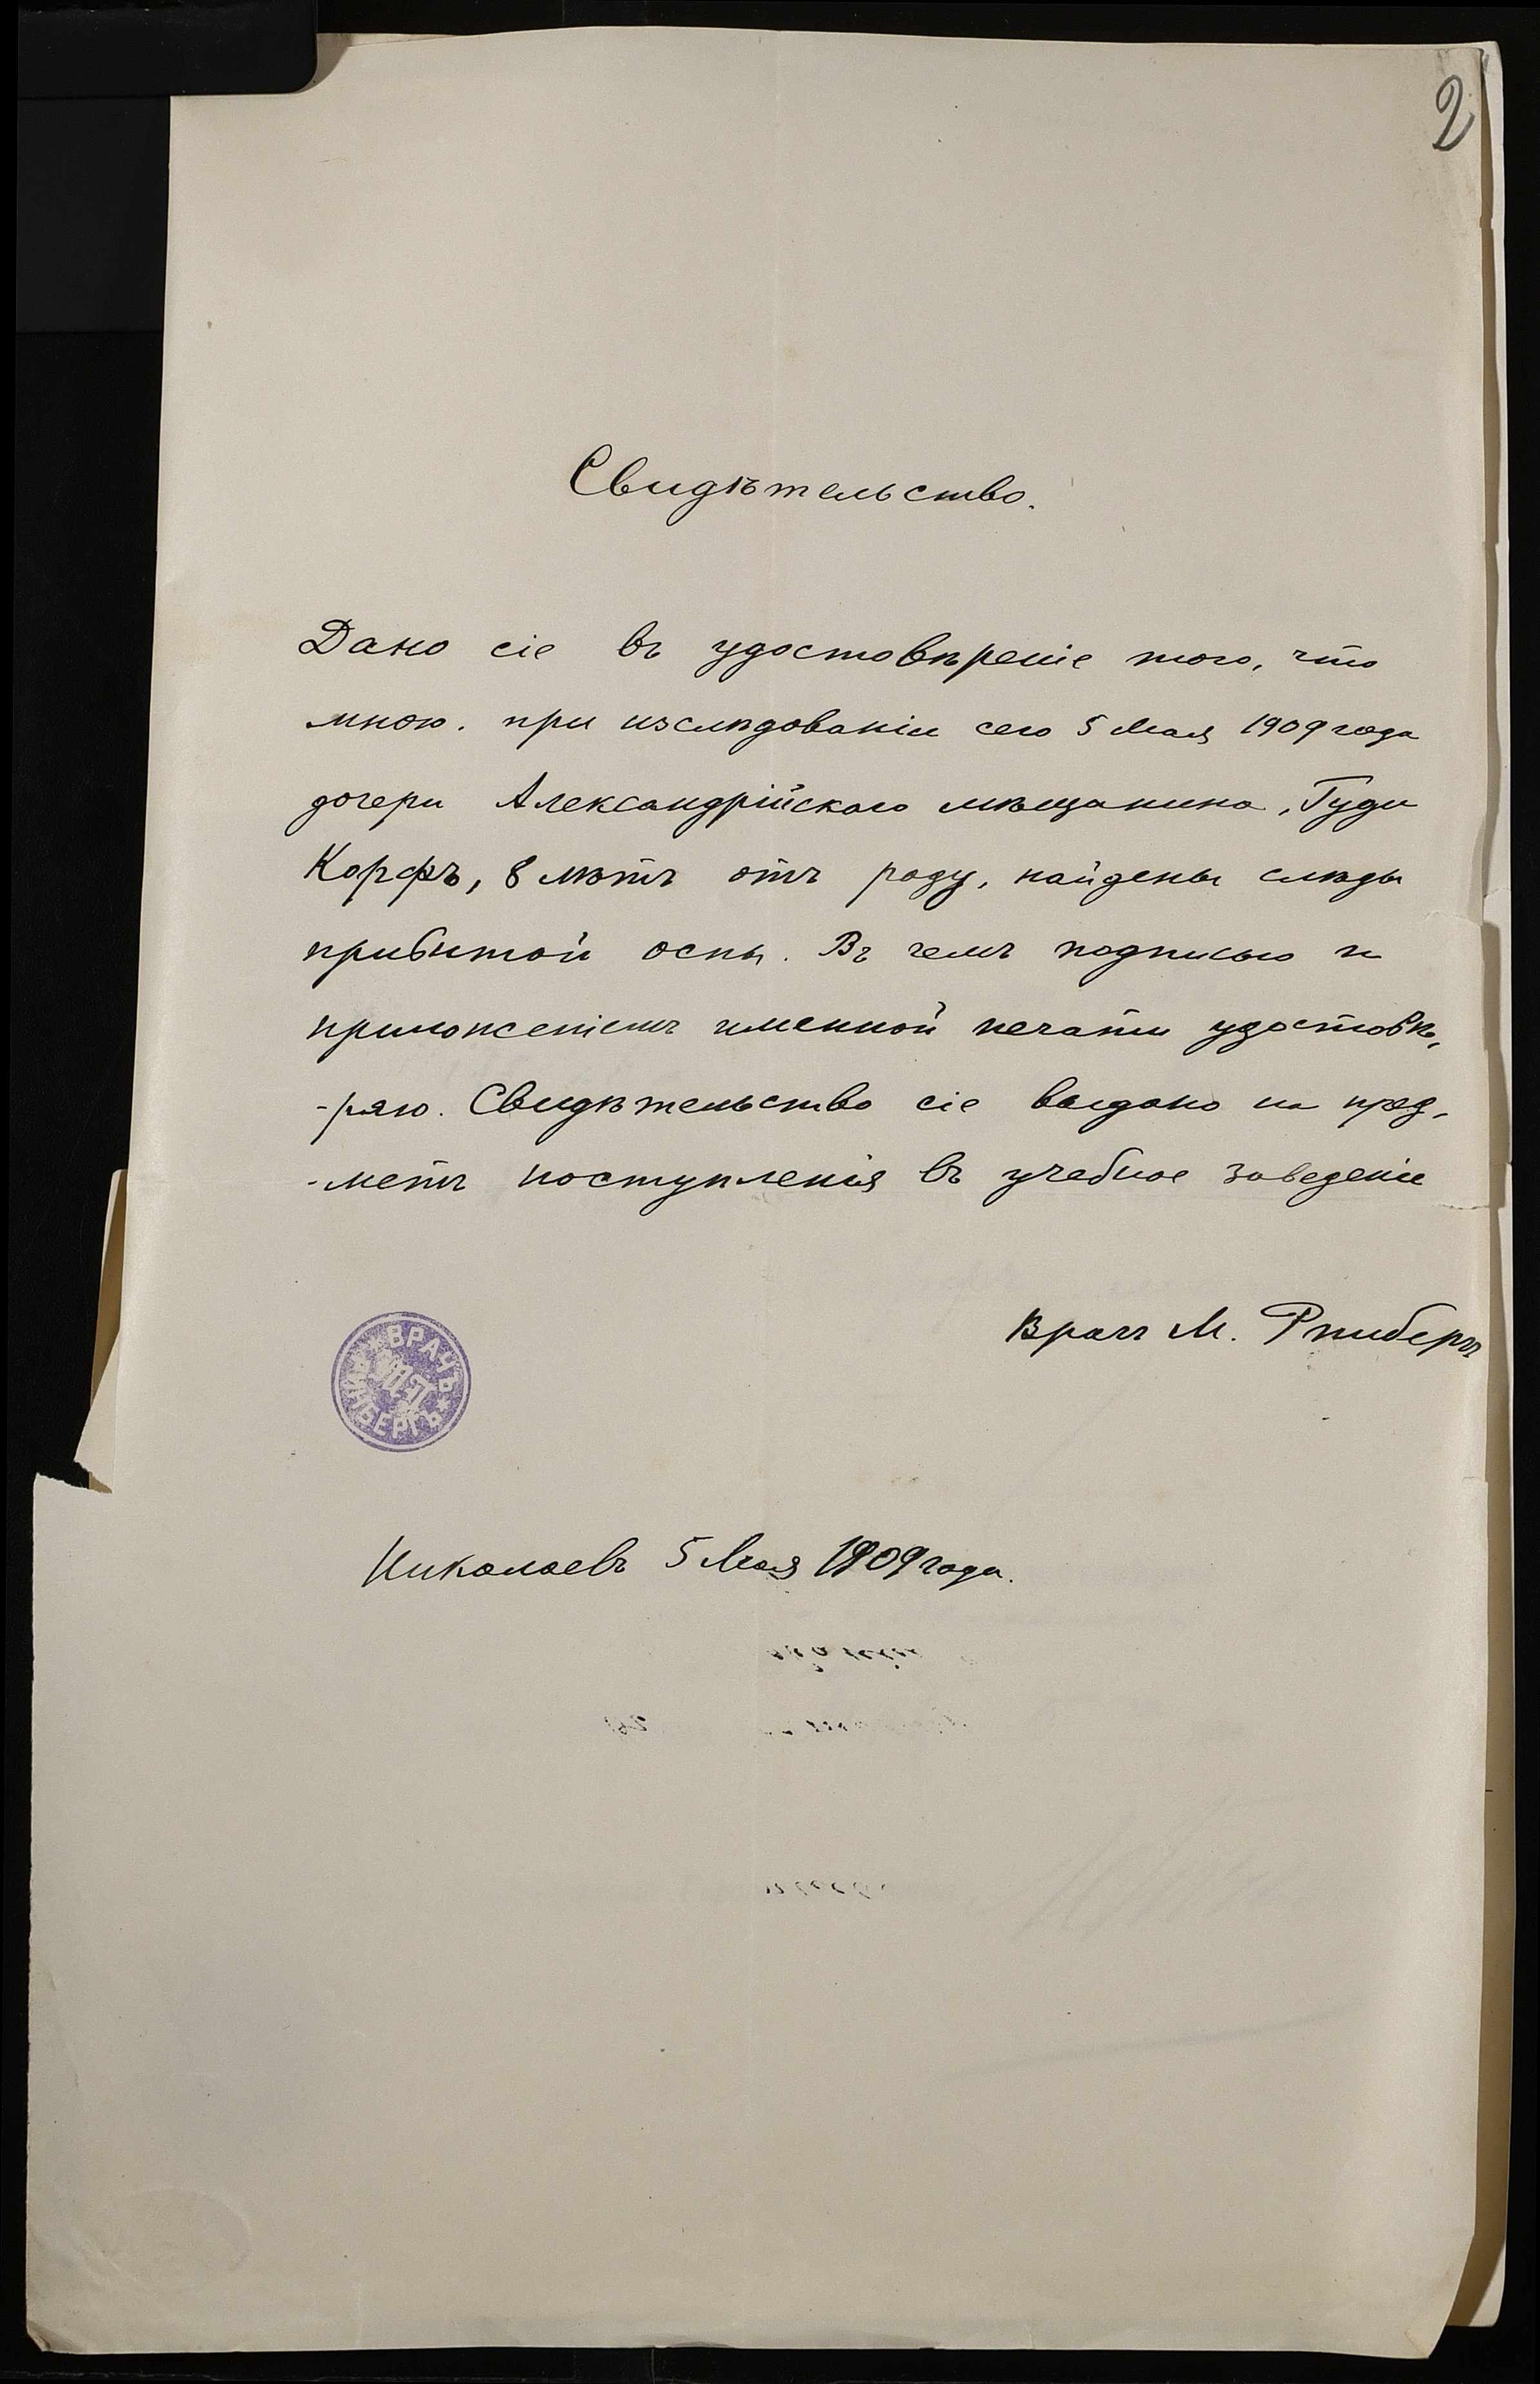 2
Свидѣтельство.
Дано сіе въ удостовѣреніе того, что
мною. при изслѣдованіи сего 5 Мая 1909 года
дочери Александрійскаго мѣщанина, Гуди
Корфъ, 8 лѣтъ отъ роду, найдены слѣды
привитой оспы. Въ чемъ подписью и
приложеніемъ именной печати удостовѣ-
-ряю. Свидѣтельство сіе выдано на пред-
-метъ поступленія въ учебное заведеніе
Врачъ М.
ВРАЧЪ
Николаевъ 5 Мая 1909 года.